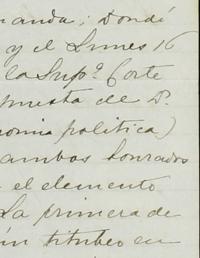 manda; Dondé
y el Lunes 16
la Supª Corte
puesta de D.
nomia politica)
ambos honrados
el elemento
La primera de
un titubeo en